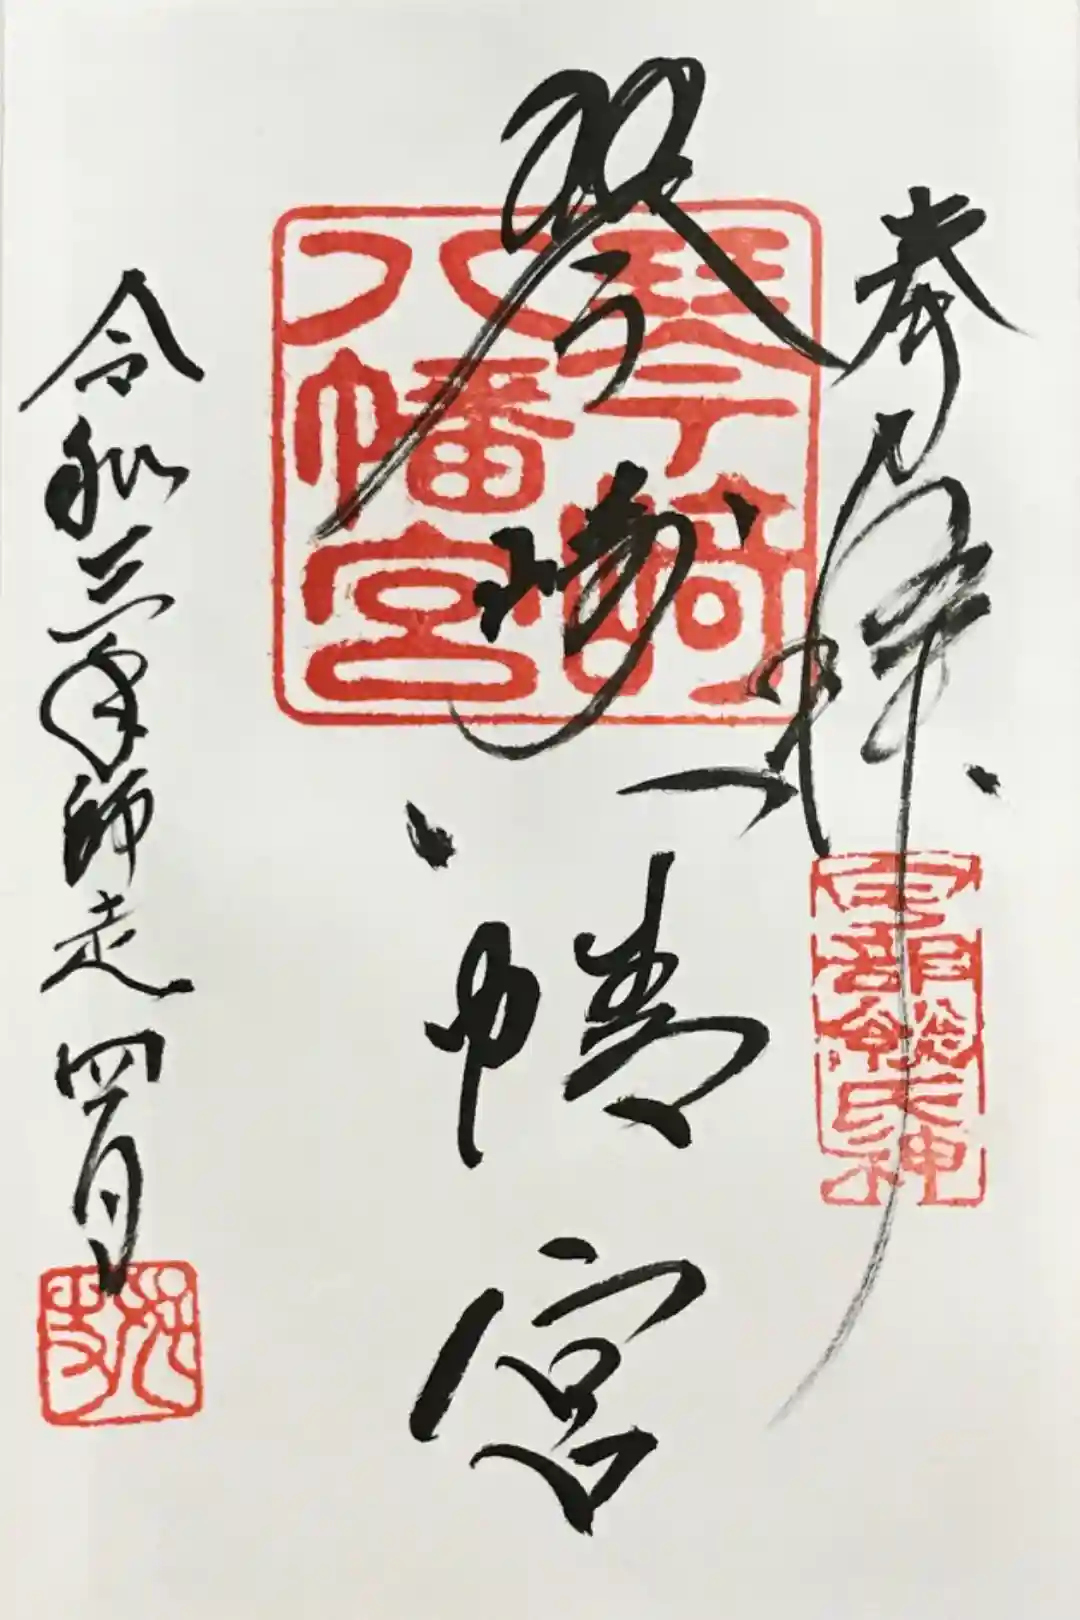 奉拝
琴崎八幡宮
琴崎
八幡宮
令和三年師走四日